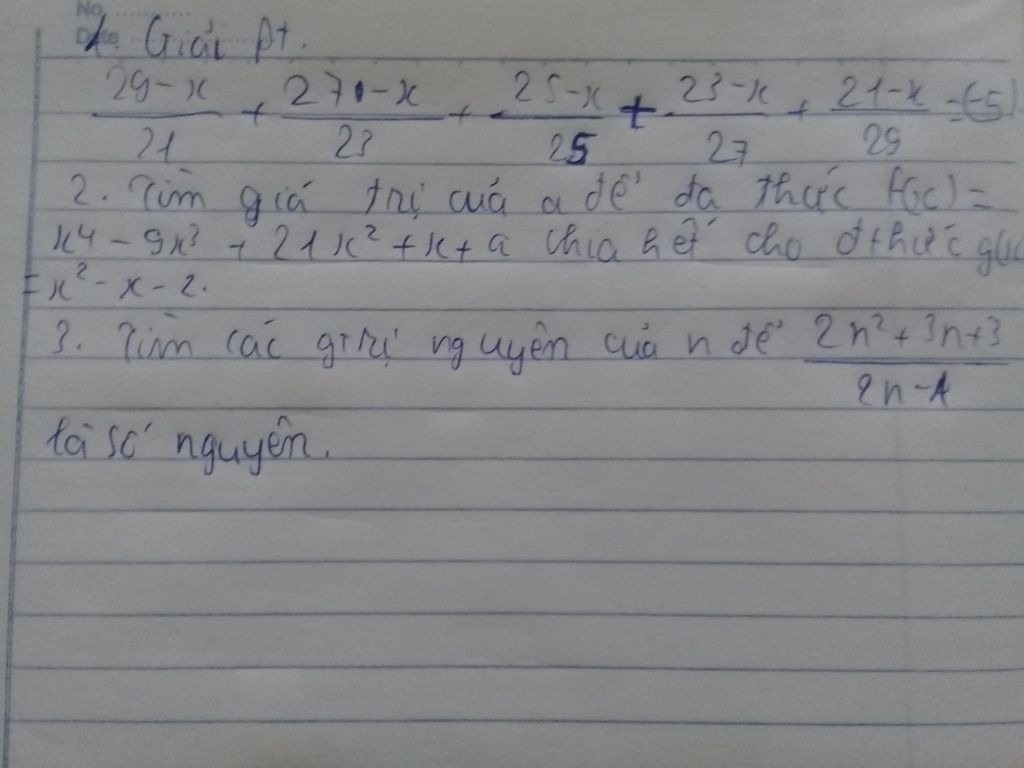 No
Date
1. Giải pt.
29-x / 21 + 27-x / 23 + 25-x / 25 + 23-x / 27 + 21-x / 29 = (-5).
2. Tìm giá trị của a để đa thức f(x) =
x⁴ - 9x³ + 21x² + x + a chia hết cho đthức g(x)
= x² - x - 2.
3. Tìm các gtrị nguyên của n để 2n² + 3n + 3 / 2n - 1
là số nguyên.